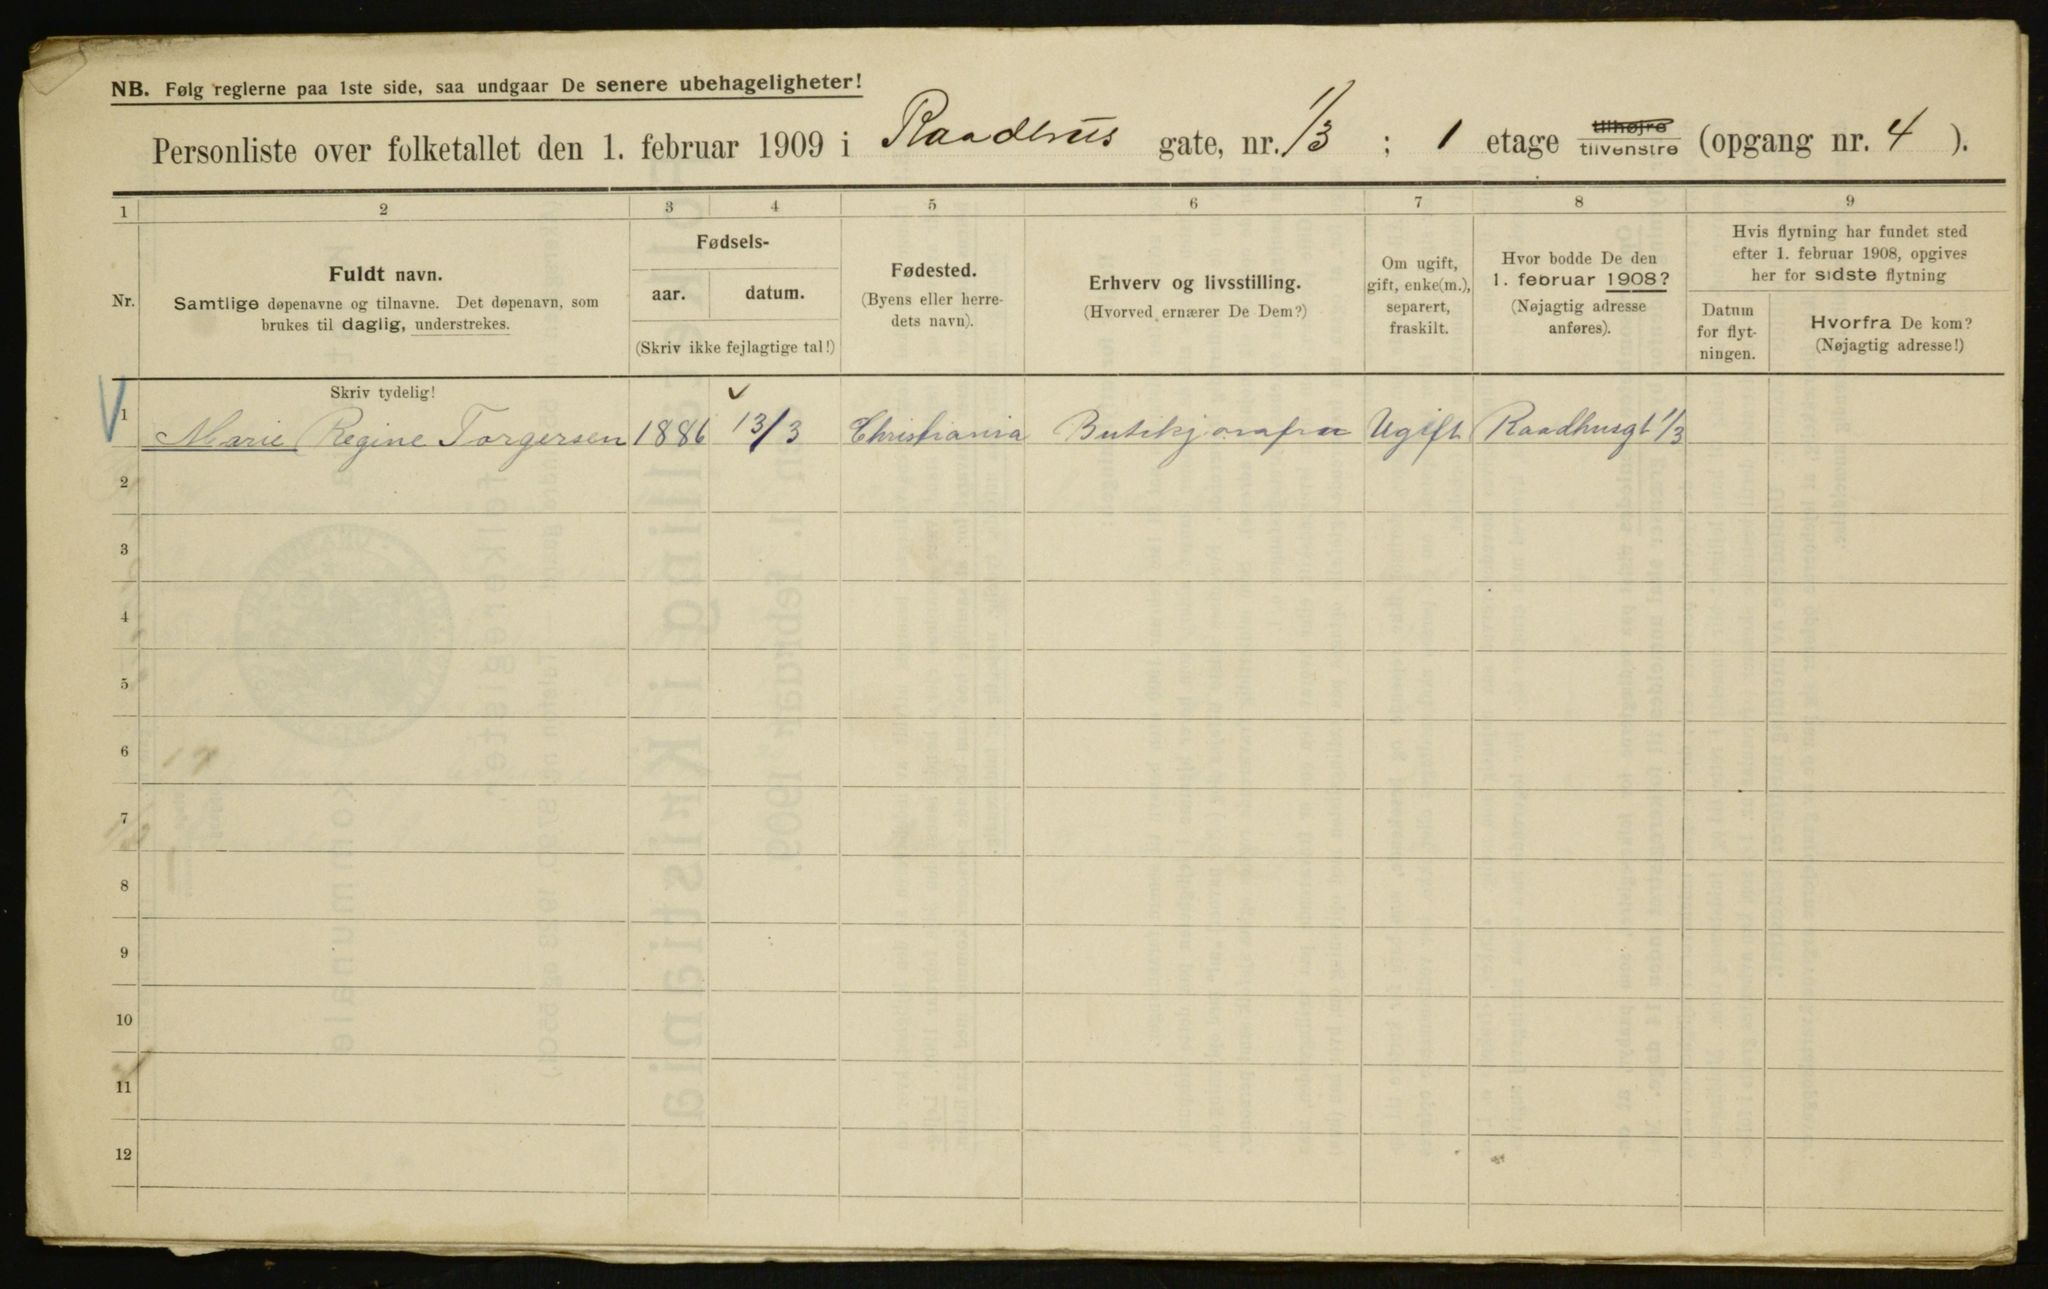 NB. Følg reglerne paa 1ste side, saa undgaar De senere ubehageligheter!
Personliste over folketallet den 1. februar 1909 i Raadhus gate, nr. 1/3 ; 1 etage tilhøjre tilvenstre (opgang nr. 4 ).
1 2 3 4 5 6 7 8 9
Nr.
Fuldt navn.
Samtlige døpenavne og tilnavne. Det døpenavn, som
brukes til daglig, understrekes.
Fødsels-
aar. datum.
(Skriv ikke fejlagtige tal!)
Fødested.
(Byens eller herre-
dets navn).
Erhverv og livsstilling.
(Hvorved ernærer De Dem?)
Om ugift,
gift, enke(m.),
separert,
fraskilt.
Hvor bodde De den
1. februar 1908?
(Nøjagtig adresse
anføres).
Hvis flytning har fundet sted
efter 1. februar 1908, opgives
her for sidste flytning
Datum
for flyt-
ningen.
Hvorfra De kom?
(Nøjagtig adresse!)
Skriv tydelig!
1 Marie Regine Torgersen 1886 13/3 Christiania Ugift Raadhusgt 1/3
2
3
4
5
6
7
8
9
10
11
12